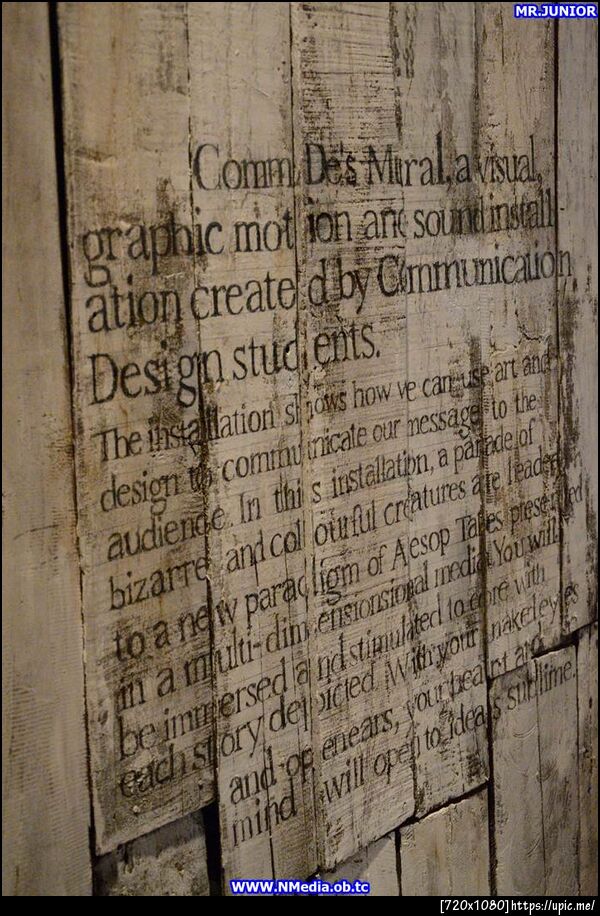 MR.JUNIOR
CommDe's Mural, a visual,
graphic motion and sound install
ation created by Communication
Design students.
The installation shows how we can use art and
design to communicate our message to the
audience. In this installation, a parade of
bizarre and colourful creatures are leaders
to a new paradigm of Aesop Tales presented
in a multi-dimensionsional media. You will
be immersed and stimulated to core with
each story depicted. With your naked eyes
and open ears, your heart and
mind will open to ideas sublime.
WWW.NMedia.ob.tc
[720x1080]https://upic.me/